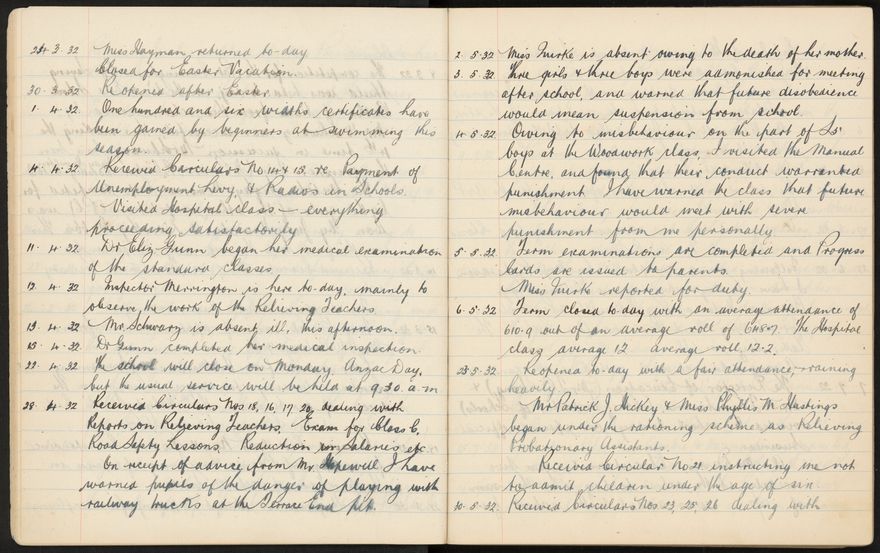 24.3.32 Miss Hayman returned to-day
Closed for Easter Vacation.
30.3.32 Reopened after Easter.
1.4.32 One hundred and six widths certificates have
been gained by beginners at swimming this
season.
4.4.32 Received Circulars No 14 & 15. re Payment of
Unemployment Levy, & Radios in Schools.
Visited Hospital class – everything
proceeding satisfactorily
11.4.32 Dr Eliz. Gunn began her medical examination
of the standard classes
12.4.32 Inspector Merrington is here to-day, mainly to
observe the work of the Relieving Teachers
13.4.32 Mr Schwarz is absent, ill, this afternoon.
15.4.32 Dr Gunn completed her medical inspection.
22.4.32 The school will close on Monday, Anzac Day,
but the usual service will be held at 9.30. a-m
28.4.32 Received Circulars Nos 18, 16, 17, 20, dealing with
Reports on Relieving Teachers, Exam for Class C,
Road Safety Lessons, Reduction in Salaries etc
On receipt of advice from Mr Hopewill I have
warned pupils of the danger of playing with
railway trucks at the Terrace End pit.
2.5.32 Miss Quirke is absent owing to the death of her mother.
3.5.32 Three girls & three boys were admonished for meeting
after school, and warned that future disobedience
would mean suspension from school.
4.5.32 Owing to misbehaviour on the part of S5
boys at the Woodwork class, I visited the Manual
Centre, and found that their conduct warranted
punishment. I have warned the class that future
misbehaviour would meet with severe
punishment from me personally
5.5.32 Term examinations are completed and Progress
Cards are issued to parents.
Miss Quirke reported for duty.
6.5.32 Term closed to-day with an average attendance of
610.9 out of an average roll of 648.7. The Hospital
class average 12 average roll 12.2.
23.5.32 Reopened to-day with a fair attendance, – raining
heavily
Mr Patrick J. Hickey & Miss Phyllis M. Hastings
began under the rationing scheme as Relieving
Probationary Assistants.
Received Circular No 21 instructing me not
to admit children under the age of six.
30.5.32 Received Circulars Nos 23, 25, 26 dealing with